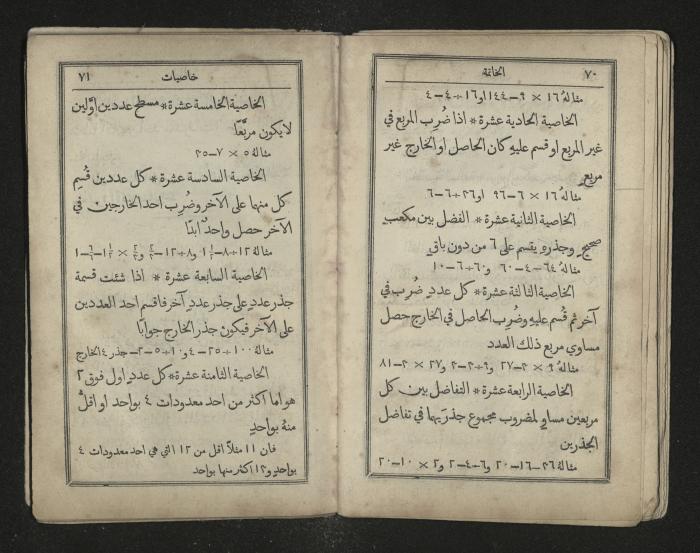 ٧٠ الخاتمة
مثالهُ ١٦ × ٩ — ١٤٤ او ١٦ ÷ ٤ — ٤
الخاصية الحادية عشرة * اذا ضُرِب المربع في
غير المربع او قسم عليهِ كان الحاصل او الخارج غير
مربع
مثالهُ ١٦ × ٦ — ٩٦ او ٣٦ ÷ ٦ — ٦
الخاصية الثانية عشرة * الفضل بين مكعب
صحيح وجذرهِ يقسم على ٦ من دون باقٍ
مثالهُ ٦٤ — ٤ — ٦٠ و ٦٠ ÷ ٦ — ١٠
الخاصية الثالثة عشرة * كل عددٍ ضُرِب في
آخر ثم قُسم عليهِ وضُرِب الحاصل في الخارج حصل
مساوي مربع ذلك العدد
مثالهُ ٩ × ٣ — ٢٧ و ٩ ÷ ٣ — ٣ و ٢٧ × ٣ — ٨١
الخاصية الرابعة عشرة * التفاضل بين كل
مربعين مساوٍ لمضروب مجموع جذرَيهما في تفاضل
الجذرين
مثالهُ ٣٦ — ١٦ — ٢٠ و ٦ — ٤ — ٢ و ٢ × ١٠ — ٢٠
خاصيات ٧١
الخاصية الخامسة عشرة * مسطح عددين اوَّلين
لا يكون مربَّعًا
مثالهُ ٥ × ٧ — ٣٥
الخاصية السادسة عشرة * كل عددين قُسِم
كل منهما على الآخر وضُرِب احد الخارجين في
الآخر حصل واحدٌ ابدًا
مثالهُ ١٢ ÷ ٨ —
الخاصية السابعة عشرة * اذا شئت قسمة
جذر عددٍ على جذر عددٍ آخر فاقسم احد العددين
على الآخر فيكون جذر الخارج جوابًا
مثالهُ ١٠٠ ÷ ٢٥ — ٤ و ١٠ ÷ ٥ — ٢ — جذر ٤ الخارج
الخاصية الثامنة عشرة * كل عددٍ اول فوق ٣
هو اما اكثر من احد معدودات ٤ بواحد او اقلُّ
منهُ بواحدٍ
فان ١١ مثلاً اقل من ١٢ التي هي احد معدودات ٤
بواحدٍ و ١٣ اكثر منها بواحد